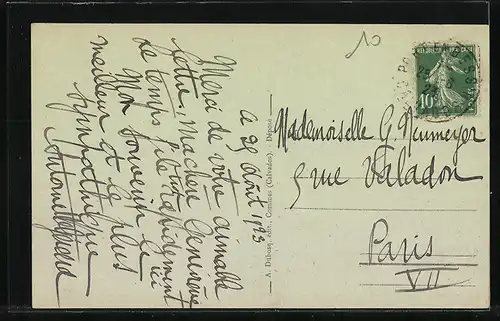 10
Ce 25 Août 1923
Merci de votre aimable
lettre, Ma chère Geneviève
le temps file rapidement
Mon souvenir le
meilleur et le plus
sympathique
A. Dubosq, édit., Courseulles (Calvados). — Déposé
RÉPUBLIQUE FRANÇAISE
10
Mademoiselle G. Neumeyer
5 rue Valadon
Paris
VII